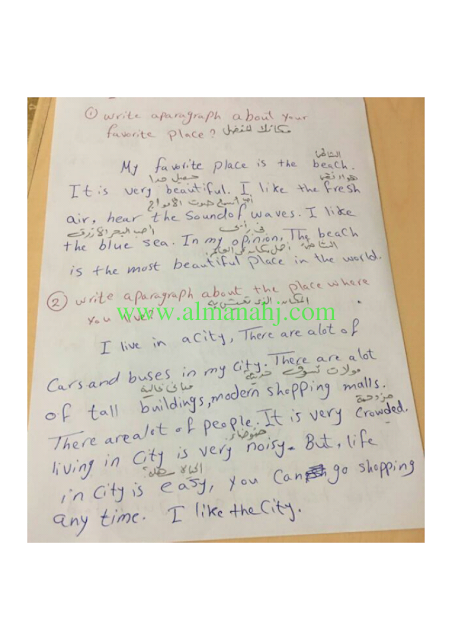 ① write aparagraph about your
favorite place? مكانك المفضل
الشاطئ
My favorite place is the beach.
جميل جدا
It is very beautiful. I like the fresh
صوت الأمواج
air, hear the Sound of waves. I like
أحب البحر الأزرق في رأيي
the blue sea. In my opinion, The beach
الشاطئ أجمل مكان في العالم
is the most beautiful place in the world.
② write aparagraph about the place where
المكان الذي تعيش فيه
you live?
www.almanahj.com
I live in acity, There are alot of
Cars and buses in my city. There are alot
مباني عالية مولات تسوق حديثة
of tall buildings, modern shopping malls.
مزدحمة
There are alot of people. It is very Crowded.
ضوضاء
living in City is very noisy. But, life
الحياة سهلة
in City is easy, you Can go shopping
any time. I like the City.